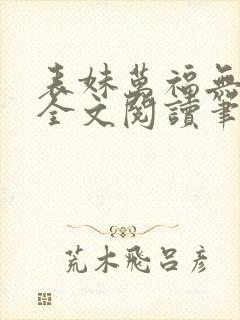 表妹萬福無
全文閱讀筆
荒木飛呂彥